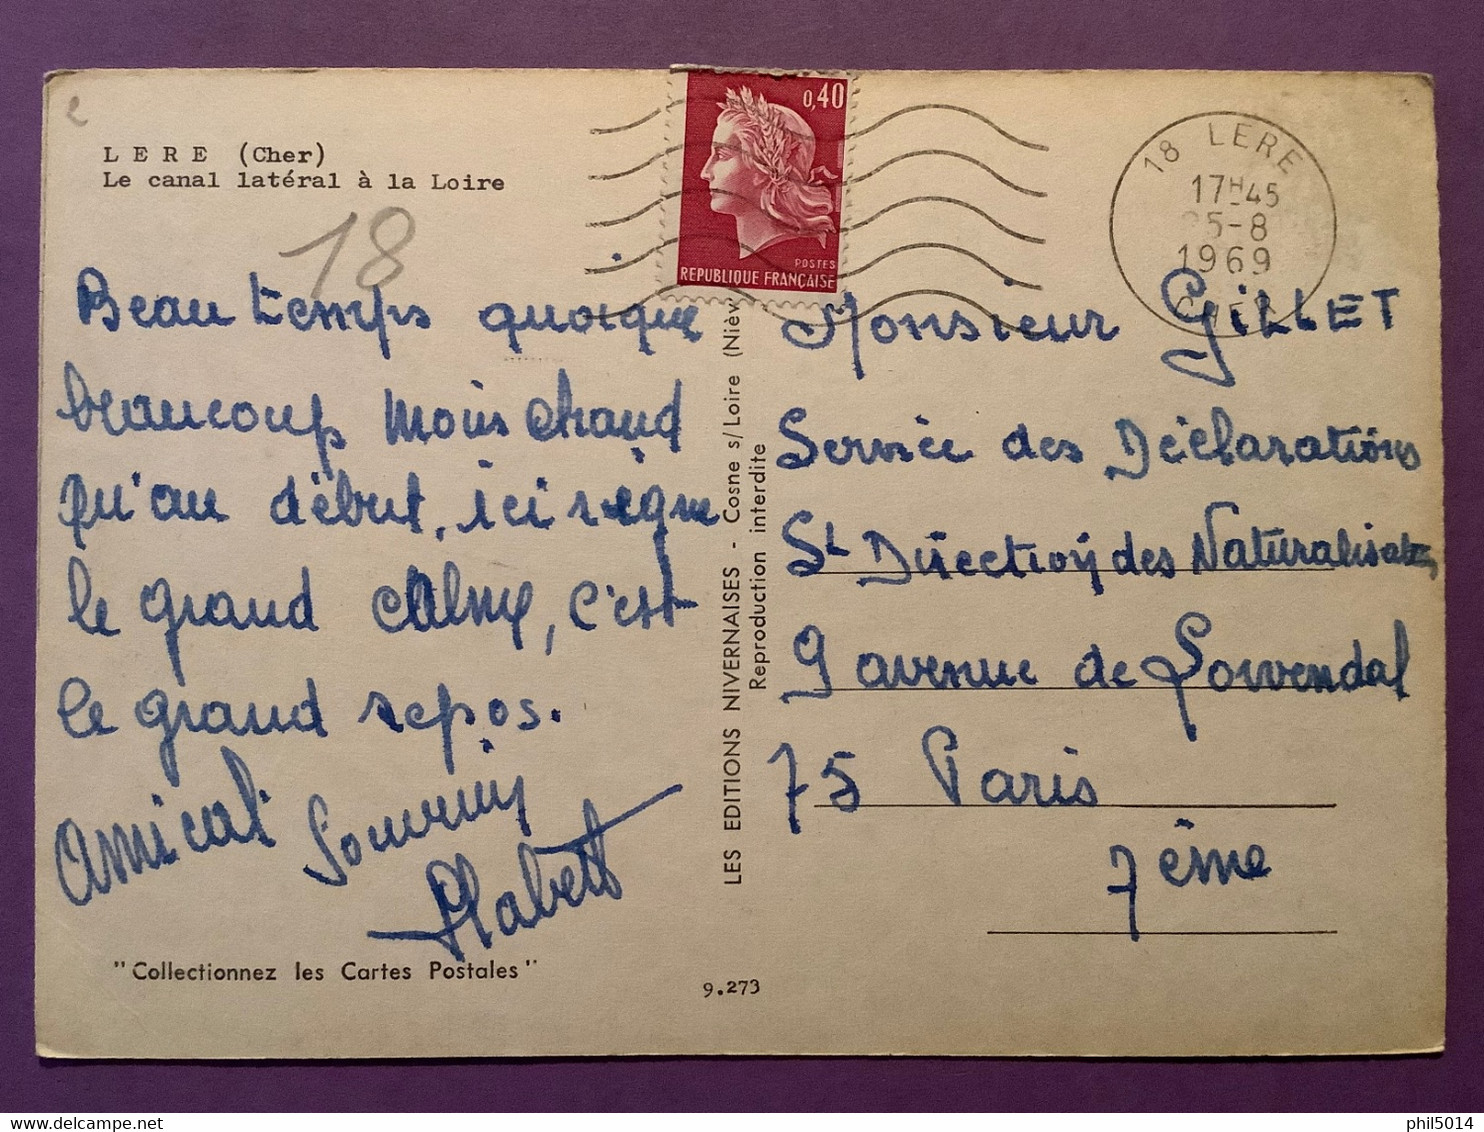 LERE (Cher)
Le canal latéral à la Loire
18
Beau temps quoique
beaucoup moins chaud
qu'au début, ici règne
le grand calme, c'est
le grand repos.
amical souvenir
"Collectionnez les Cartes Postales"
LES EDITIONS NIVERNAISES - Cosne s/Loire (Nièv
Reproduction interdite
9.273
0,40
POSTES
REPUBLIQUE FRANÇAISE
18 LERE
17H45
25-8
1969
CHER
Monsieur GILLET
Service des Déclarations
St Direction des Naturalisation
9 avenue de Lowendal
75 Paris
7ème
delcampe.net
phil5014